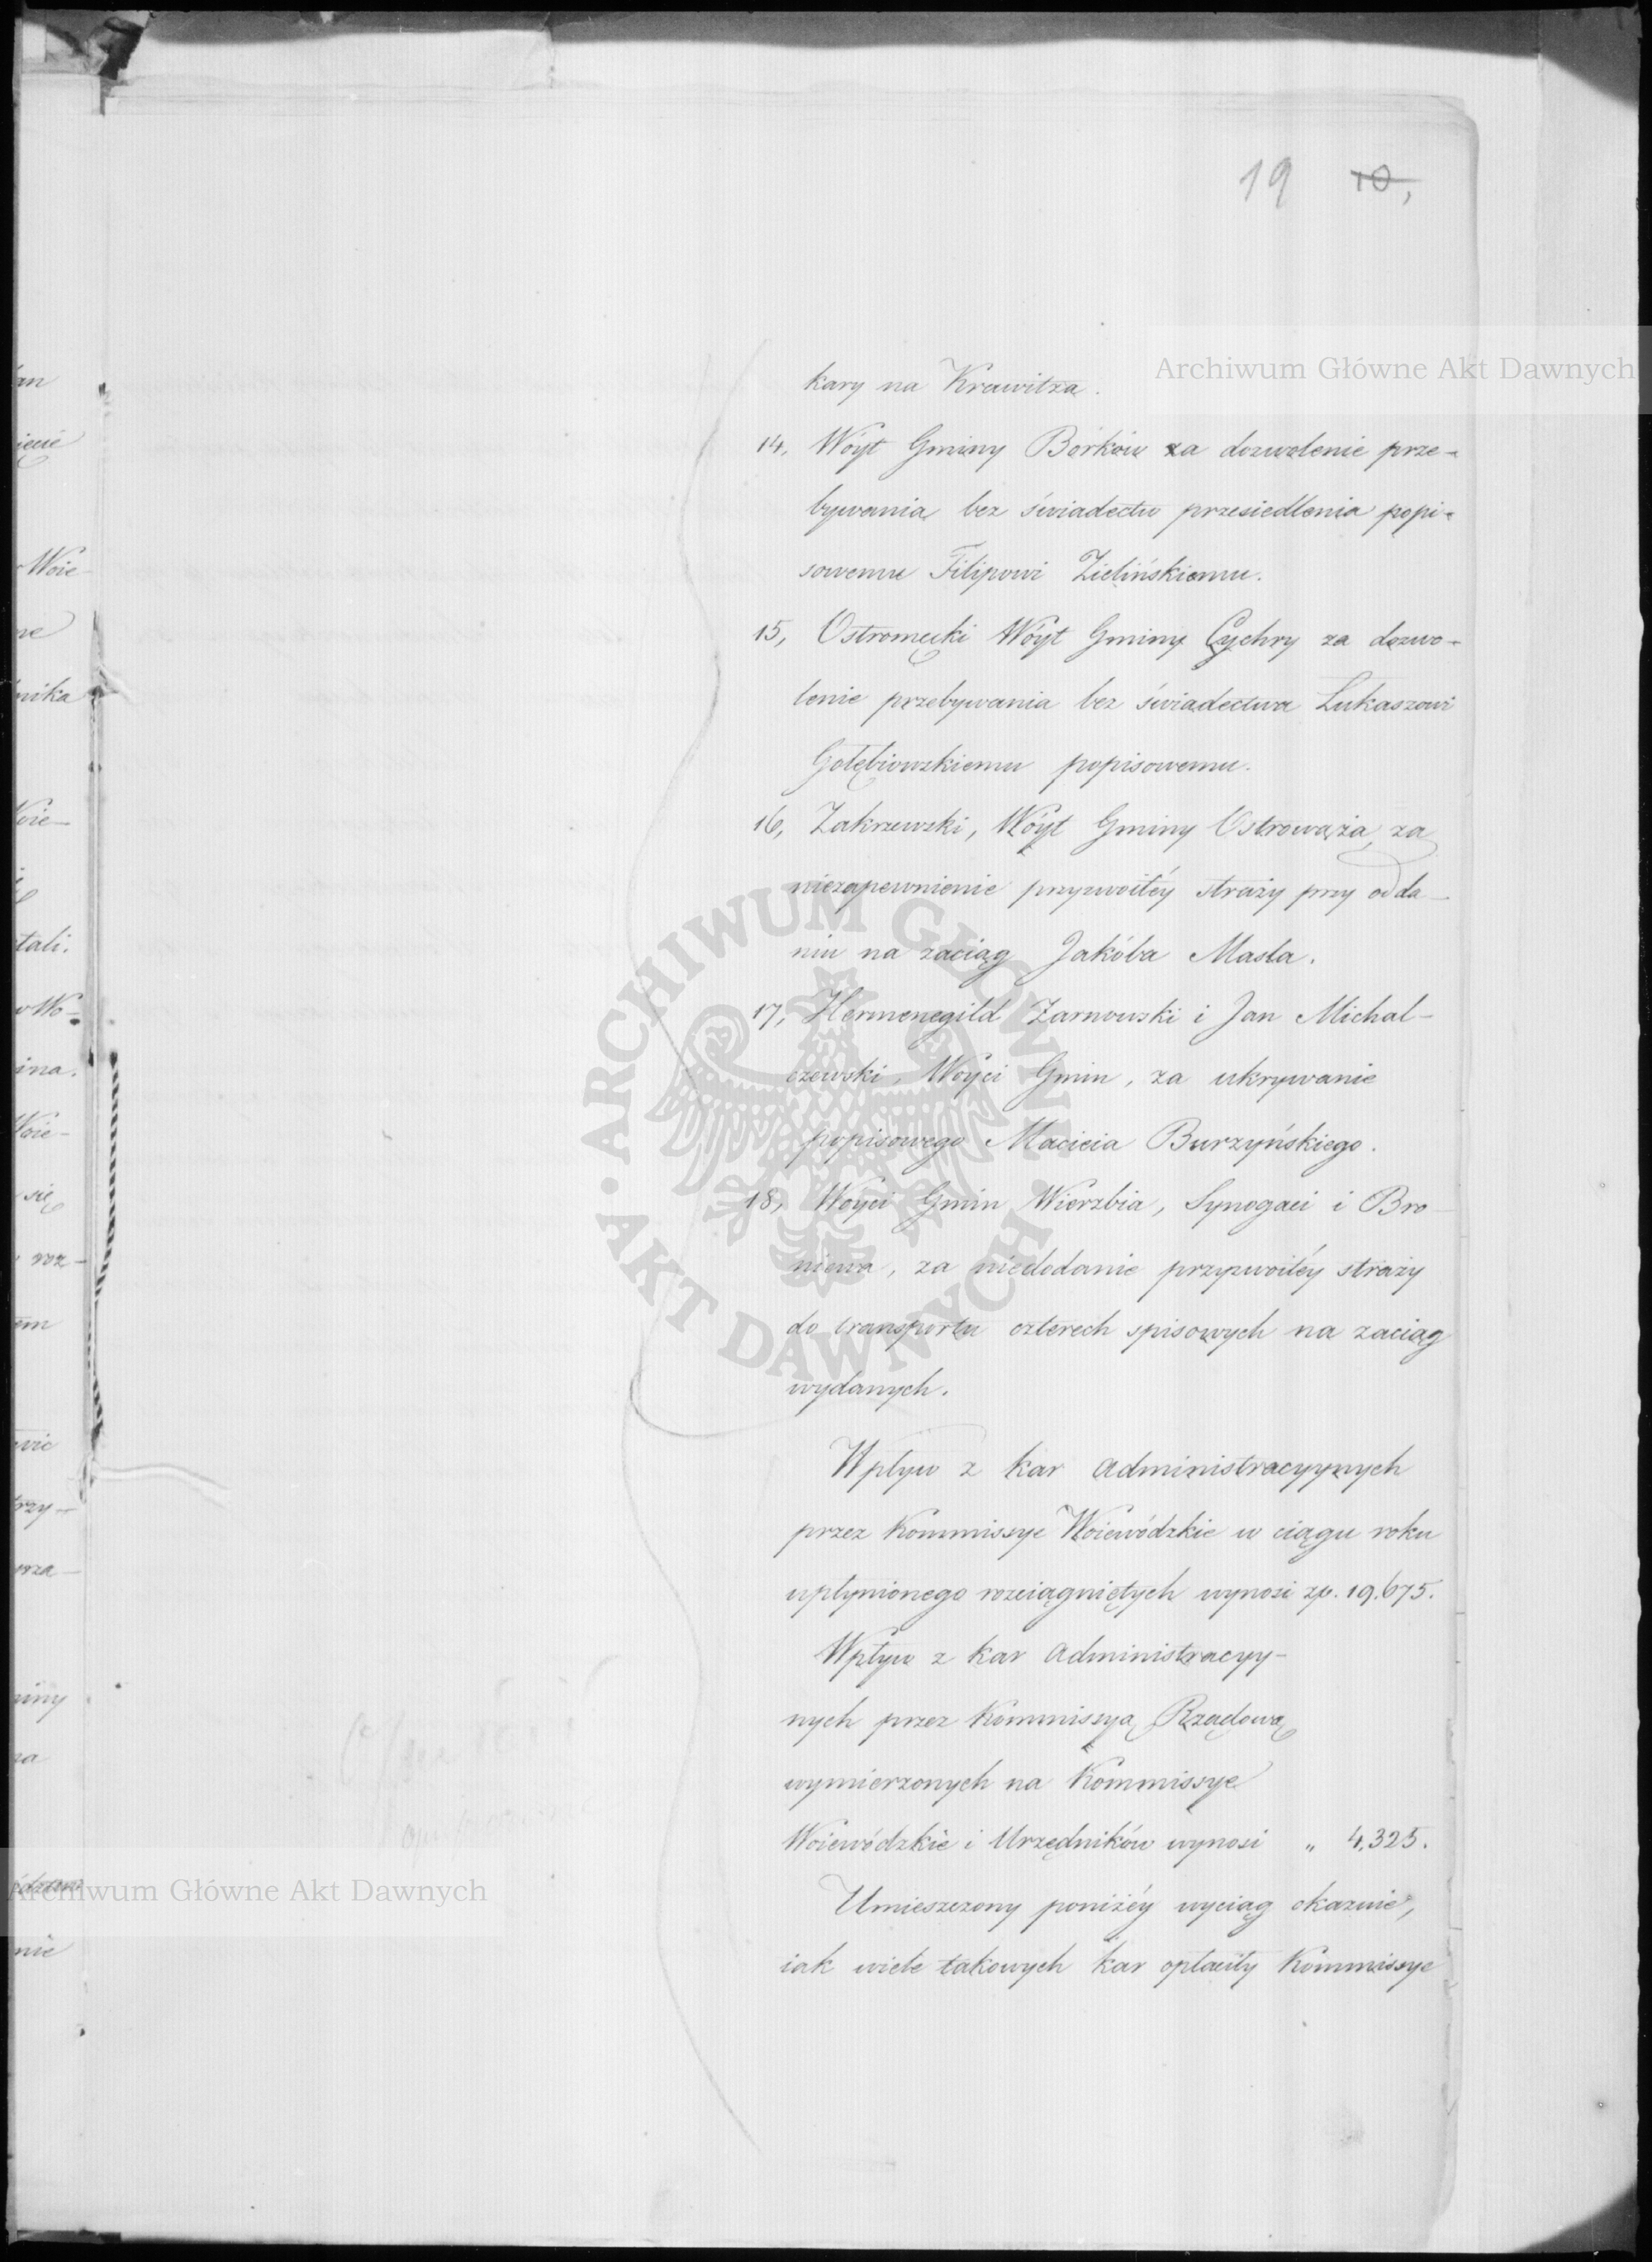 19 10,
Archiwum Główne Akt Dawnych
kary na Krawitza.
14, Wóyt Gminy Borków za dozwolenie prze-
bywania bez świadectw przesiedlenia popi-
sowemu Filipowi Zielińskiemu.
15, Ostromęcki Wóyt Gminy Cychry za dozwo-
lenie przebywania bez świadectwa Łukaszowi
Gołębiowskiemu popisowemu.
16, Zakrzewski, Wóyt Gminy Ostrowąża, za
niezapewnienie przyzwoitéy straży przy odda-
niu na zaciąg Jakóba Masła.
17, Hermenegild Żarnowski i Jan Michal-
czewski, Wóyci Gmin, za ukrywanie
popisowego Macieia Burzyńskiego.
18, Wóyci Gmin Wierzbia, Synogaci i Bro-
niewa, za niedodanie przyzwoitéy straży
do transportu czterech spisowych na zaciąg
wydanych.
Wpływ z kar administracyynych
przez Kommissye Woiewódzkie w ciągu roku
upłynionego rozciągniętych wynosi zp. 19.675.
Wpływ z kar administracyy-
nych przez Kommissyą Rządową
wymierzonych na Kommissye
Woiewódzkie i Urzędników wynosi „ 4,325.
Umieszczony poniżéy wyciąg okazuie,
iak wiele takowych kar opłaciły Kommissye
ARCHIWUM GŁÓWNE · AKT DAWNYCH ·
Archiwum Główne Akt Dawnych